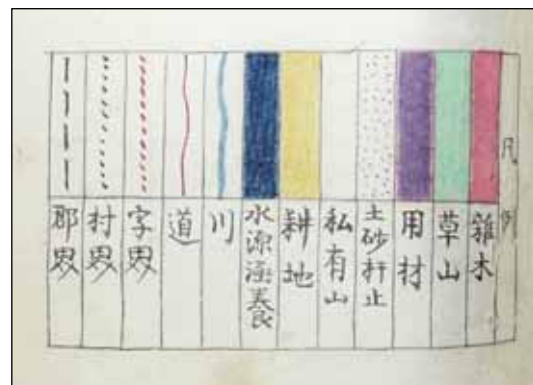 凡例
雑木
草山
用材
土砂扞止
私有山
耕地
水源涵養
川
道
字界
村界
郡界